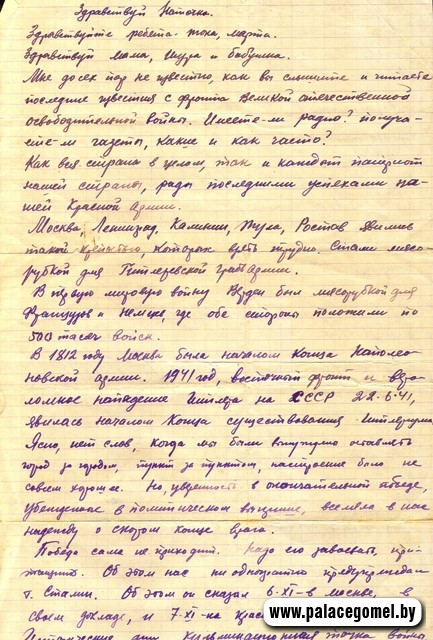 Здравствуй Наточка.
Здравствуйте ребята - Тома, Марта.
Здравствуй мама, Шура и бабушка.
Мне до сех пор не известно, как вы слышите и читаете
последние известия с фронта Великой отечественной
освободительной войны. Имеете-ли радио? получа-
ете-ли газеты, какие и как часто?
Как вся страна в целом, так и каждый патриот
нашей страны, рады последними успехами на-
шей Красной Армии.
Москва, Ленинград, Калинин, Тула, Ростов явились
такой крепостью, которых взять трудно. Стали мясо-
рубкой для Гитлеровской грабармии.
В первую мировую войну Верден был мясорубкой для
Французов и Немцев, где обе стороны положили по
500 тысяч войск.
В 1812 году Москва была началом конца Наполео-
новской армии. 1941 год, восточный фронт и веро-
ломное нападение Гитлера на СССР 22-6-41,
явилась началом конца существования Гитлеризма.
Ясно, нет слов, когда мы были вынуждены оставлять
город за городом, пункт за пунктом, настроение было не
совсем хорошее. Но, уверенность в окончательной победе,
убежденные в политическом вождение, вселяла в нас
надежду о скором конце врага.
Победа сама не приходит. Надо его завоевать, при-
тащить. Об этом нас ни однократно предупреждал
т. Сталин. Об этом он сказал 6-XI-в Москве, в
своем докладе, и 7-XI-на
www.palacegomel.by